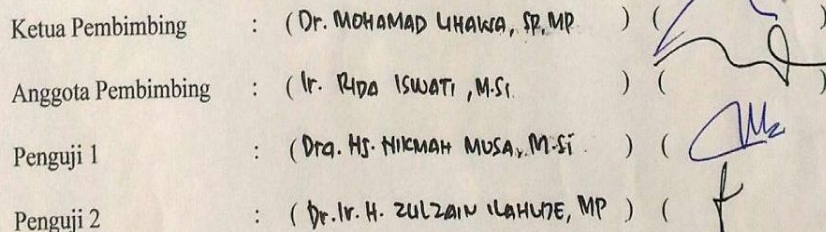 Ketua Pembimbing : (Dr. MOHAMAD LIHAWA, SP, MP ) ( )
Anggota Pembimbing : (Ir. RIDA ISWATI, M.Si ) ( )
Penguji 1 : (Dra. HS. NIKMAH MUSA, M.Si ) (
Penguji 2 : (Dr. Ir. H. ZULZAIN ILAHUDE, MP ) (